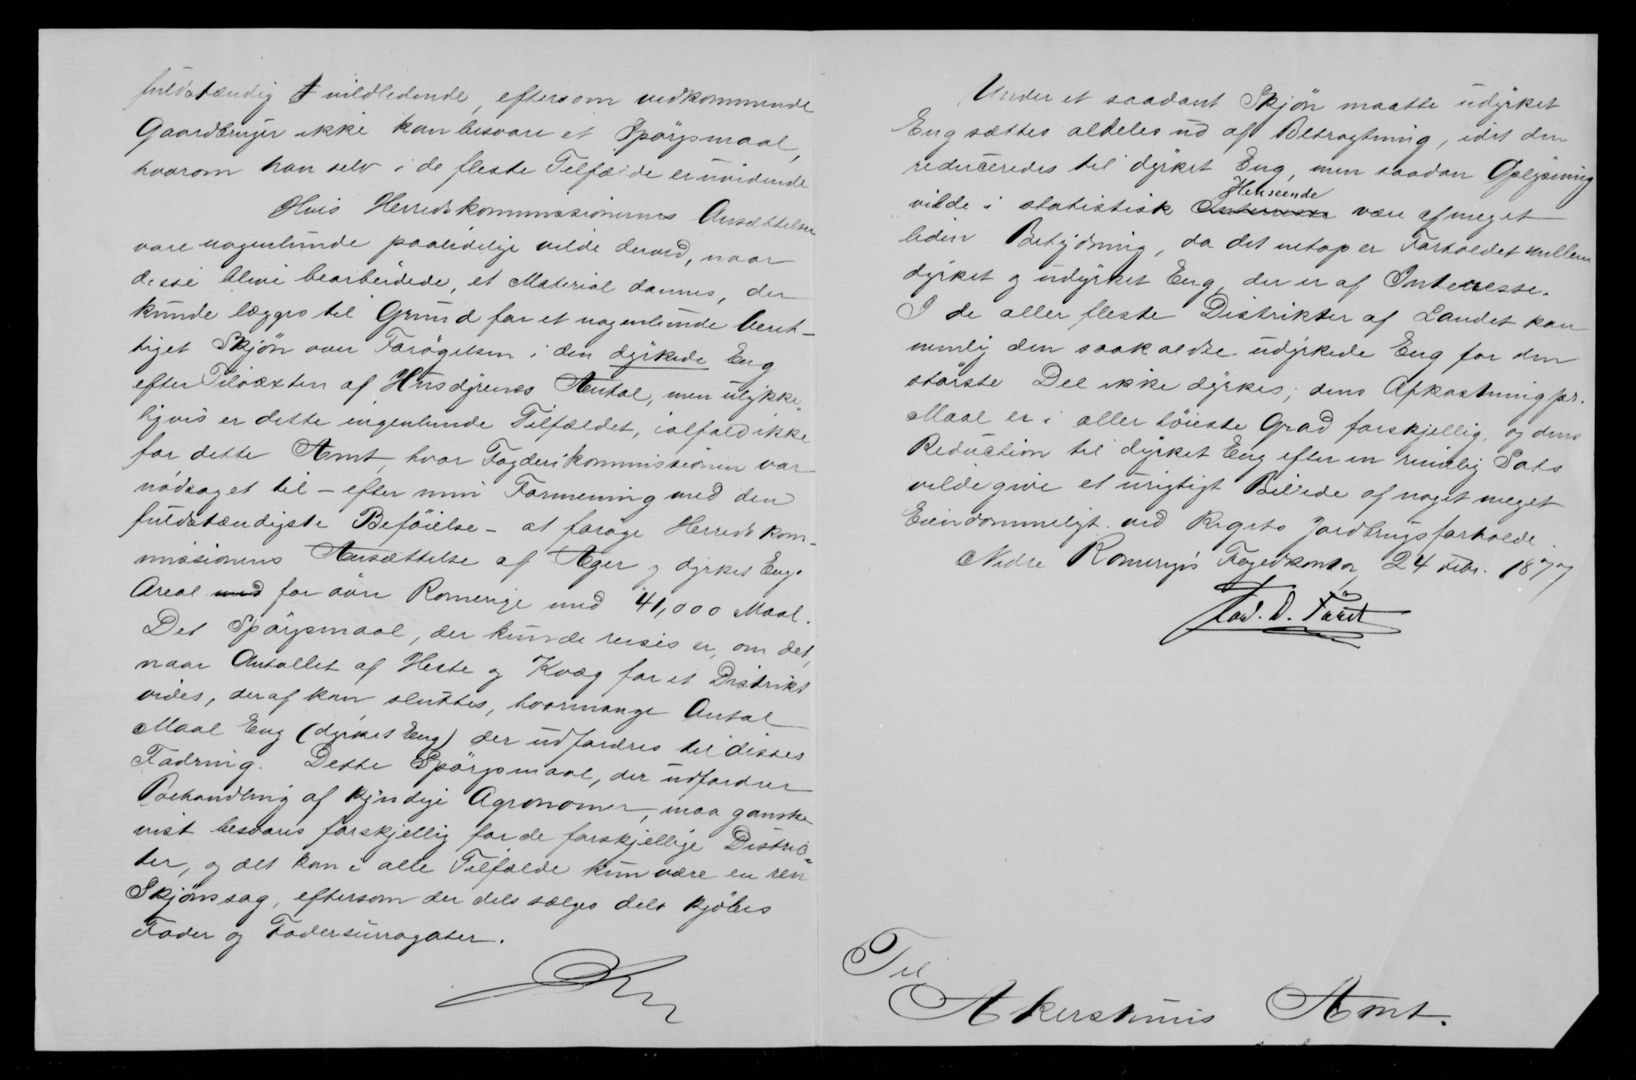 fuldstændig vildledende, eftersom vedkommende
Gaardbruger ikke kan besvare et Spörgsmaal,
hvorom han selv i de fleste Tilfælde er uvidende
Hvis Herredskommissionernes Ansættelser
vare nogenlunde paalidelige vilde derved, naar
disse bleve bearbeidede, et Material dannes, der
kunde lægges til Grund for et nogenlunde beret-
tiget Skjön over Forögelsen i den dyrkede Eng
efter Tilvæxten af Husdyrenes Antal, men ulykke-
ligvis er dette ingenlunde Tilfældet, ialfald ikke
for dette Amt, hvor Fogderikommissionen var
nödsaget til – efter min Formening med den
fuldstændigste Beföielse – at foröge Herredskom-
missionens Ansættelse af Ager og dyrket Eng.
Areal med for övre Romerige med 41,000 Maal.
Det Spörgsmaal, der kunde reises er, om det,
naar Antallet af Heste og Kvæg for et Distrikt
vides, deraf kan sluttes, hvormange Antal
Maal Eng (dyrket Eng) der udfordres til disses
Fodring. Dette Spörgsmaal, der udfordrer
Behandling af kyndige Agronomer, maa ganske
vist besvares forskjellig for de forskjellige Distric-
ter, og det kan i alle Tilfælde kun være en ren
Skjönssag, eftersom der dels sælges dels kjöbes
Foder og Fodersurrogater.
Under et saadant Skjön maatte udyrket
Eng sættes aldeles ud af Betragtning, idet den
reduceredes til dyrket Eng, men saadan Oplysning
Henseende
vilde i statistisk Interesse være af meget
liden Betydning, da det netop er Forholdet mellem
dyrket og udyrket Eng, der er af Interesse.
I de aller fleste Distrikter af Landet kan
nemlig den saakaldte udyrkede Eng for den
störste Del ikke dyrkes; dens Afkastning pr.
Maal er i aller höieste Grad forskjellig, og dens
Reduction til dyrket Eng efter en rimelig Sats
vilde give et urigtigt Billede af noget meget
Eiendommeligt ved Rigets Jordbrugsforholde.
Nedre Romerigs Fogedkontor, 24 Febr. 1877
Til
Akershuus Amt.